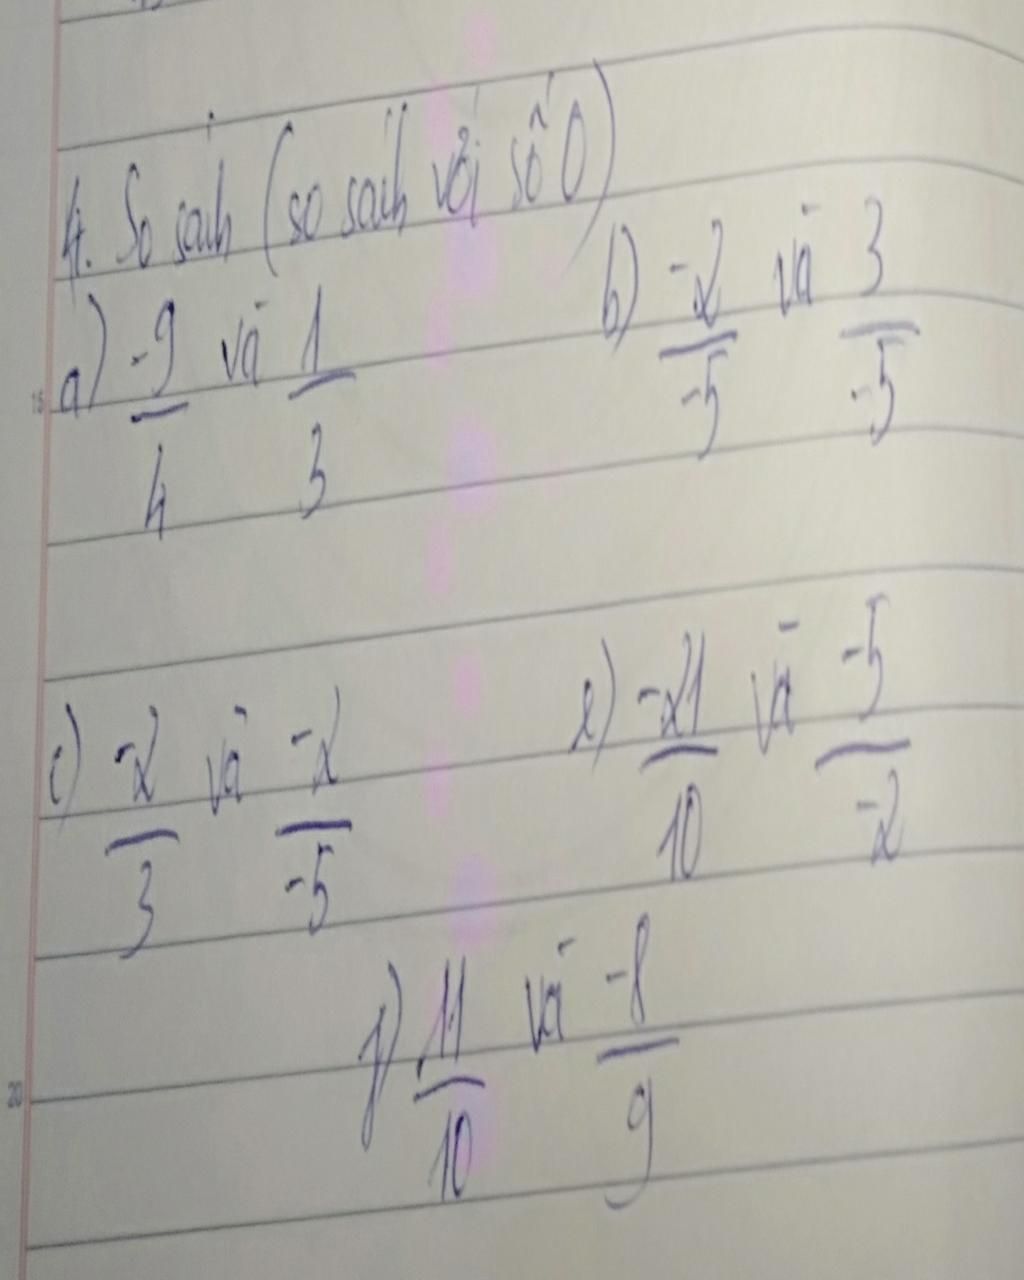 4. So sánh (so sánh với số 0)
a) -9/4 và 1/3 b) -2/-5 và 3/-5
c) -2/3 và -2/-5 e) -21/10 và -5/-2
f) 11/10 và -8/9
15
20